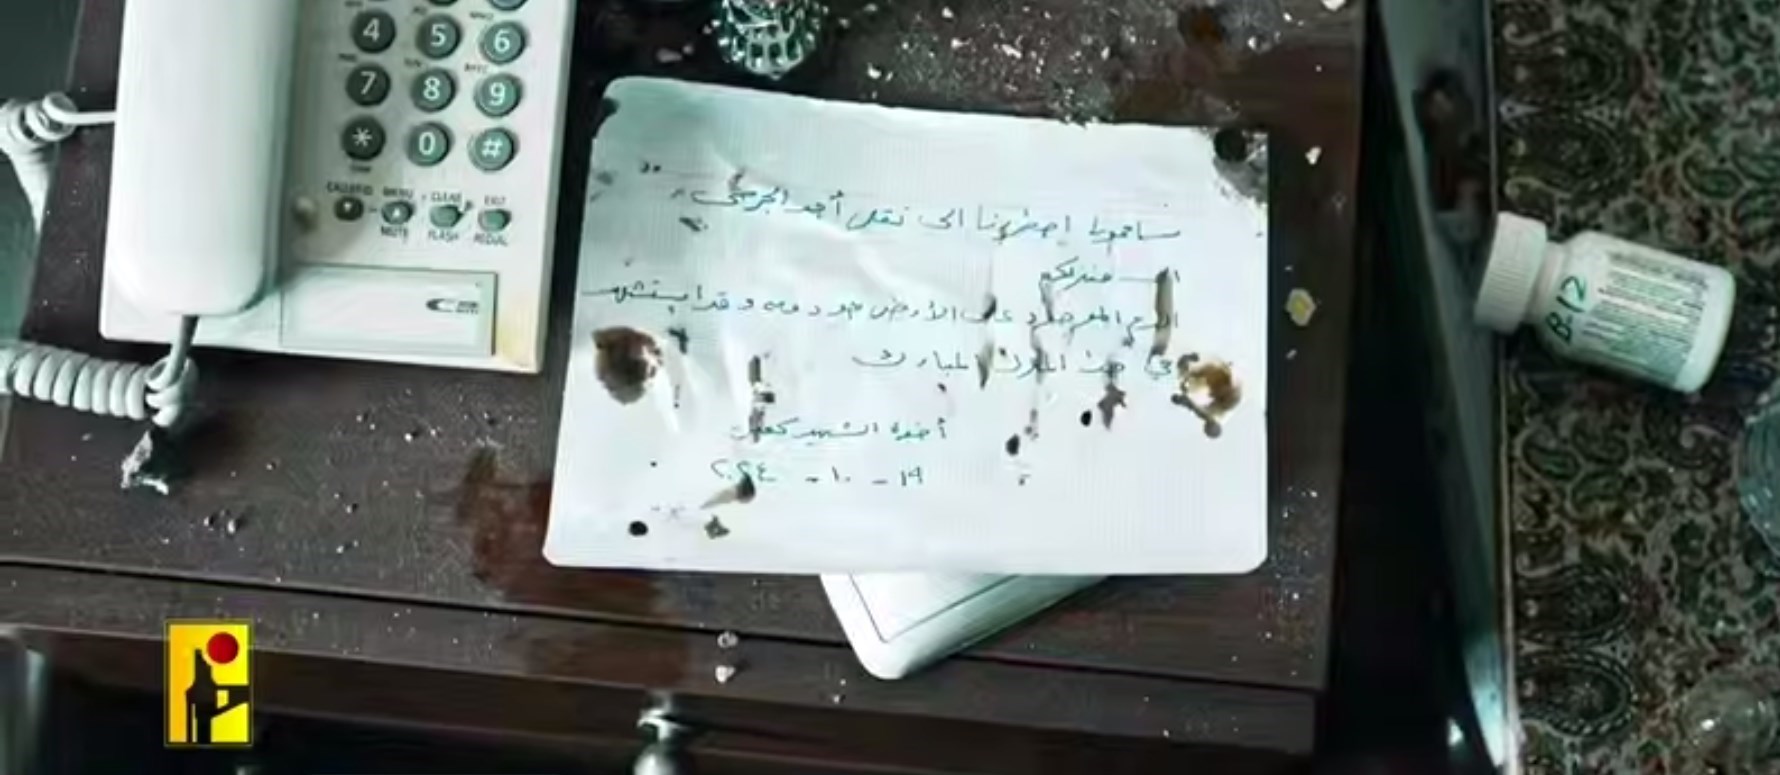 4 5 6
7 8 9
* 0 #
CALLER ID MENU CLEAR EXIT
MUTE FLASH REDIAL
سامحونا اضطرينا الى نقل أحد الجرحى
الى منزلكم
الدم الموجود على الأرض هو دمه وقد استشهد
في هذا المكان المبارك
أخوة الشهيد
١٩ - ١٠ - ٢٠٢٤
B12